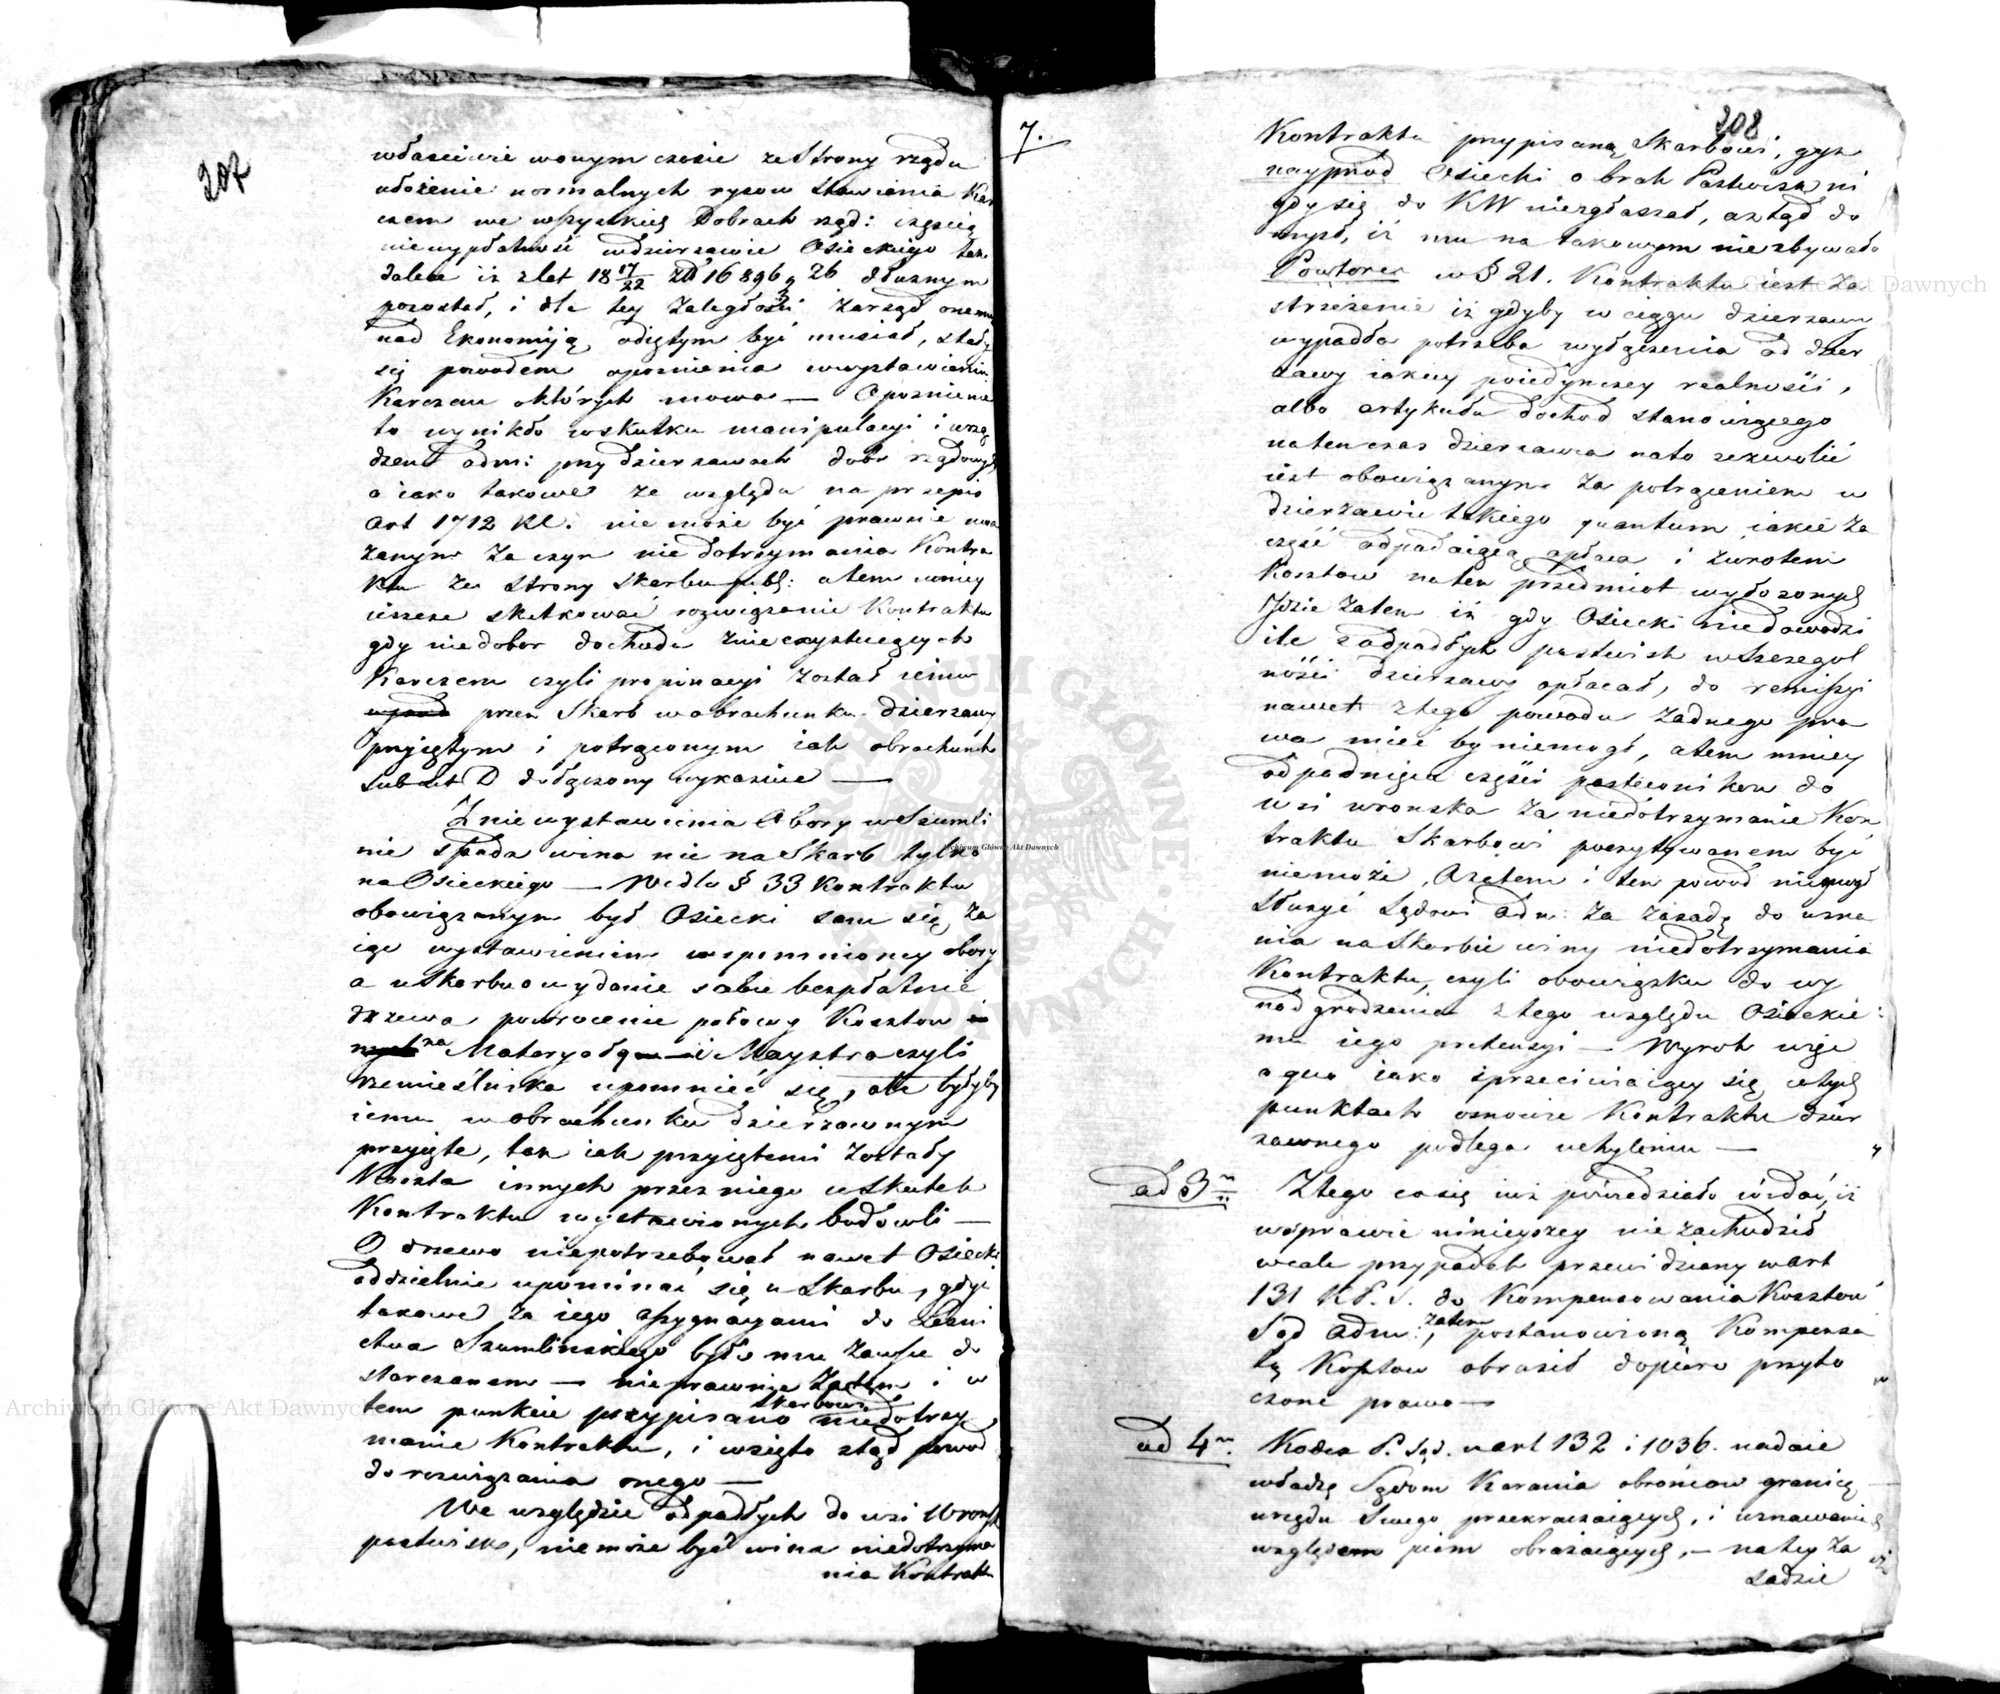 207
właściwie wonym czasie ze Strony rządu
ułożenie normalnych rysow stawienia Kar
czem we wszystkich Dobrach rząd: częscią
niewypłatność wdzierzawie Osieckiego tak
dalece iż z lat 18 17/22 zł 16896 g 26 dłużnym
pozostał, i dla tey zaległości zarząd onemu
nad Ekonomiją odiętym być musiał, stały
się powodem opoznienia wwystawieniu
Karczem o których mowa — Opoznienie
to wynikło wskutku manipulacyi i urzą
dzeń adm: przy dzierzawach dobr rządowych
a iako takowe ze względu na przepis
Art 1712 KC. nie może być prawnie uwa
żanym za czyn niedotrzymania Kontra
ktu ze strony skarbu publ: a tem mniey
ieszcze skutkować rozwiązanie Kontraktu
gdy niedobor dochodu z nieexystuiących
Karczem czyli propinacyi został iemu
przez Skarb w obrachunku dzierzawy
przyiętym i potrąconym iak obrachunek
sub Lit D dołączony wykazuie —
Z niewystawienia Obory w Szumli
nie spada wina nie na Skarb tylko
na Osieckiego — Wedle § 33 Kontraktu
obowiązanym był Osiecki sam się za
iąć wystawieniem wspomnioney obory
a u Skarbu o wydanie sobie bezpłatnie
drzewa, powrocenie połowy Kosztow
na Materyał i Maystra czyli
rzemieślnika upomnieć się, ate byłyby
iemu w obrachunku dzierzawnym
przyięte, tak iak przyiętemi zostały
Koszta innych przez niego w skutek
Kontraktu wystawionych budowli —
O drzewo niepotrzebował nawet Osiecki
oddzielnie upominać się u Skarbu, gdyż
takowe za iego assygnacyami do Leśni
ctwa Szumlinskiego było mu zawsze do
starczanem — nieprawnie zatem i w
tem punkcie przypisano Skarbowi niedotrzy
manie Kontraktu, i wzięto ztąd powod
do rozwiązania onego —
We względzie odpadłych do wsi Wronsk
pastwisk, nie może być wina niedotrzyma
nia Kontraktu
7.
208
Kontraktu przypisaną Skarbowi, gyż
nayprzod Osiecki o brak Pastwisk ni
gdy się do KW niezgłaszał, a ztąd do
mysł, iż mu na takowym niezbywało
Powtore w § 21. Kontraktu iest za
strzeżenie iż gdyby w ciągu dzierzawy
wypadła potrzeba wyłączenia od dzier
zawy iakiey poiedynczey realności,
albo artykułu dochod stanowiącego
natenczas dzierzawca na to zezwolić
iest obowiązanym za potrąceniem w
dzierzawie takiego quantum iakie za
część odpadaiącą opłaca i zwrotem
Kosztow na ten przedmiot wyłożonych
Idzie zatem iż gdy Osiecki niedowodzi
ile z odpadłych pastwisk wszczegol
ności dzierzawy opłacał, do remissyi
nawet z tego powodu żadnego pra
wa mieć by niemogł, a tem mniey
odpadnięcie części pastewnikow do
wsi wronska za niedotrzymanie Kon
traktu Skarbowi poczytywanem być
niemoże, A zatem i ten powod niemogł
służyć Sądowi adm: za zasadę do uzna
nia na Skarbie winy niedotrzymania
Kontraktu, czyli obowiązku do wy
nadgrodzenia z tego względu Osieckie:
mu iego pretensyi — Wyrok więc
a quo iako sprzeciwiaiący się w tych
punktach osnowie Kontraktu dzier
zawnego podlega uchyleniu —
ad 3m
Z tego co się iuż powiedziało widać, iż
wsprawie ninieyszey nie zachodził
wcale przypadek przewidziany w art
131 K.P.S. do Kompensowania Kosztow
Sąd adm:, zatem postanowioną Kompensa
tą Kosztow obraził dopiero przyto
czone prawo —
ad 4m.
Kodex P. Sąd. w art 132 i 1036. nadaie
władzę Sądom Karania obrońcow granicę
urzędu Swego przekraczaiących, i uznawania
względem pism obrażaiących, — na tey za
sadzie